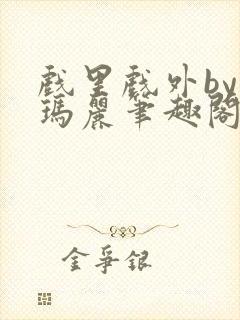 戲里戲外by
瑪麗笔趣閣
金爭銀